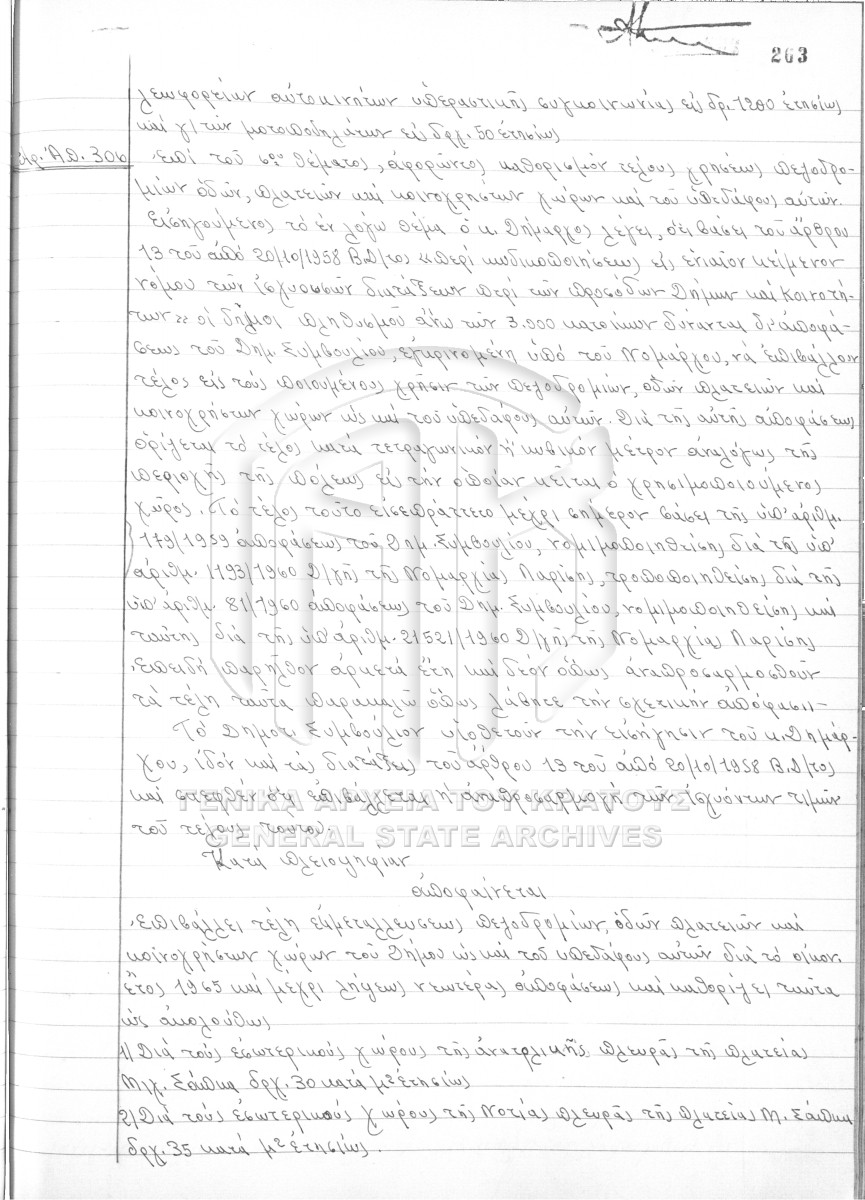 263
λεωφορείων αὐτοκινήτων ὑπεραστικῆς συγκοινωνίας εἰς δρ. 1200 ἐτησίως
καί γ) τῶν μοτοποδηλάτων εἰς δρχ. 50 ἐτησίως
Ἀρ. Ἀπ. 306
Ἐπί τοῦ 6ου θέματος, ἀφορῶντος καθορισμόν τέλους χρήσεως πεζοδρο-
μίων ὁδῶν, πλατειῶν καί κοινοχρήστων χώρων καί τοῦ ὑπεδάφους αὐτῶν.
Εἰσηγούμενος τό ἐν λόγῳ θέμα ὁ κ. Δήμαρχος λέγει, ὅτι βάσει τοῦ ἄρθρου
13 τοῦ ἀπό 20/10/1958 Β.Δ/τος «περί κωδικοποιήσεως εἰς ἑνιαῖον κείμενον
νόμου τῶν ἰσχυουσῶν διατάξεων περί τῶν προσόδων Δήμων καί Κοινοτή-
των» οἱ δῆμοι πληθυσμοῦ ἄνω τῶν 3.000 κατοίκων δύνανται δι' ἀποφά-
σεως τοῦ Δημ. Συμβουλίου, ἐγκρινομένη ὑπό τοῦ Νομάρχου, νά ἐπιβάλλουν
τέλος εἰς τούς ποιουμένους χρῆσιν τῶν πεζοδρομίων, ὁδῶν πλατειῶν καί
κοινοχρήστων χώρων ὡς καί τοῦ ὑπεδάφους αὐτῶν. Διά τῆς αὐτῆς ἀποφάσεως
ὁρίζεται τό τέλος κατά τετραγωνικόν ἤ κυβικόν μέτρον ἀναλόγως τῆς
περιοχῆς τῆς πόλεως εἰς τήν ὁποίαν κεῖται ὁ χρησιμοποιούμενος
χῶρος. Τό τέλος τοῦτο εἰσεπράττετο μέχρι σήμερον βάσει τῆς ὑπ' ἀριθμ.
179/1959 ἀποφάσεως τοῦ Δημ. Συμβουλίου, νομιμοποιηθείσης διά τῆς ὑπ'
ἀριθμ. 1193/1960 Δ/γῆς τῆς Νομαρχίας Λαρίσης, τροποποιηθείσης διά τῆς
ὑπ' ἀριθμ. 81/1960 ἀποφάσεως τοῦ Δημ. Συμβουλίου, νομιμοποιηθείσης καί
ταύτης διά τῆς ὑπ' ἀριθμ. 21521/1960 Δ/γῆς τῆς Νομαρχίας Λαρίσης
Ἐπειδή παρῆλθον ἀρκετά ἔτη καί δέον ὅπως ἀναπροσαρμοσθοῦν
τά τέλη ταῦτα παρακαλῶ ὅπως λάβητε τήν σχετικήν ἀπόφασιν-
Τό Δημοτ. Συμβούλιον υἱοθετοῦν τήν εἰσήγησιν τοῦ κ. Δημάρ-
χου, ἰδόν καί τάς διατάξεις τοῦ ἄρθρου 13 τοῦ ἀπό 20/10/1958 Β.Δ/τος
καί σκεφθέν ὅτι ἐπιβάλλεται ἡ ἀναπροσαρμογή τῶν ἰσχυόντων τιμῶν
τοῦ τέλους τούτου.
ΓΕΝΙΚΑ ΑΡΧΕΙΑ ΤΟΥ ΚΡΑΤΟΥΣ
GENERAL STATE ARCHIVES
Κατά πλειοψηφίαν
ἀποφαίνεται
Ἐπιβάλλει τέλη ἐκμεταλλεύσεως πεζοδρομίων, ὁδῶν πλατειῶν καί
κοινοχρήστων χώρων τοῦ Δήμου ὡς καί τοῦ ὑπεδάφους αὐτῶν διά τό οἰκον.
ἔτος 1965 καί μέχρι λήψεως νεωτέρας ἀποφάσεως καί καθορίζει ταῦτα
ὡς ἀκολούθως
1) Διά τούς ἐσωτερικούς χώρους τῆς ἀνατολικῆς πλευρᾶς τῆς πλατείας
Μιχ. Σάπκα δρχ. 30 κατά μ2 ἐτησίως
2) Διά τούς ἐσωτερικούς χώρους τῆς Νοτίας πλευρᾶς τῆς πλατείας Μ. Σάπκα
δρχ. 35 κατά μ2 ἐτησίως.